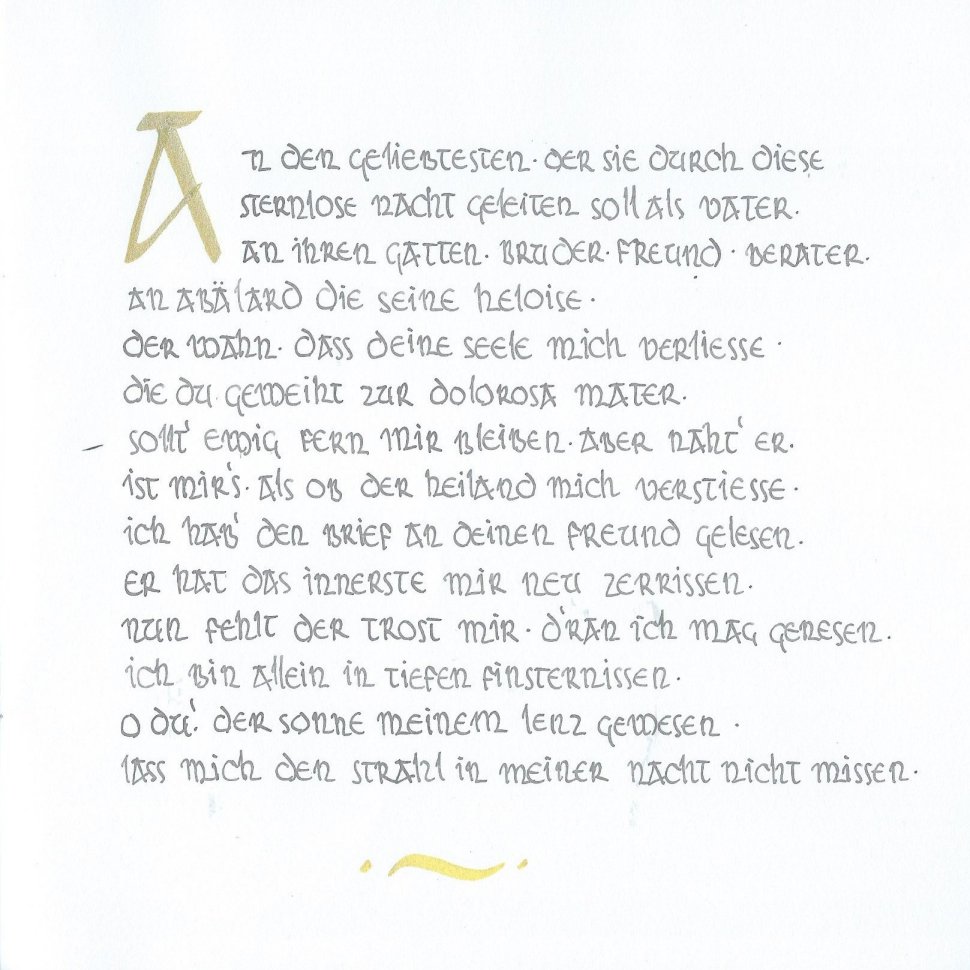 An den geliebtesten · der sie durch diese
sternlose nacht geleiten soll als vater.
an ihren gatten · bruder · freund · berater.
an abälard die seine heloise ·
der wahn · dass deine seele mich verliesse ·
die du geweiht zur dolorosa mater.
sollt' ewig fern mir bleiben · aber naht' er.
ist mir's · als ob der heiland mich verstiesse ·
ich hab' den brief an deinen freund gelesen.
er hat das innerste mir neu zerrissen.
nun fehlt der trost mir · d'ran ich mag genesen.
ich bin allein in tiefen finsternissen.
o du! der sonne meinem lenz gewesen ·
lass mich den strahl in meiner nacht nicht missen.